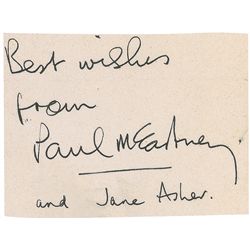 Best wishes
from
Paul McCartney
and Jane Asher.